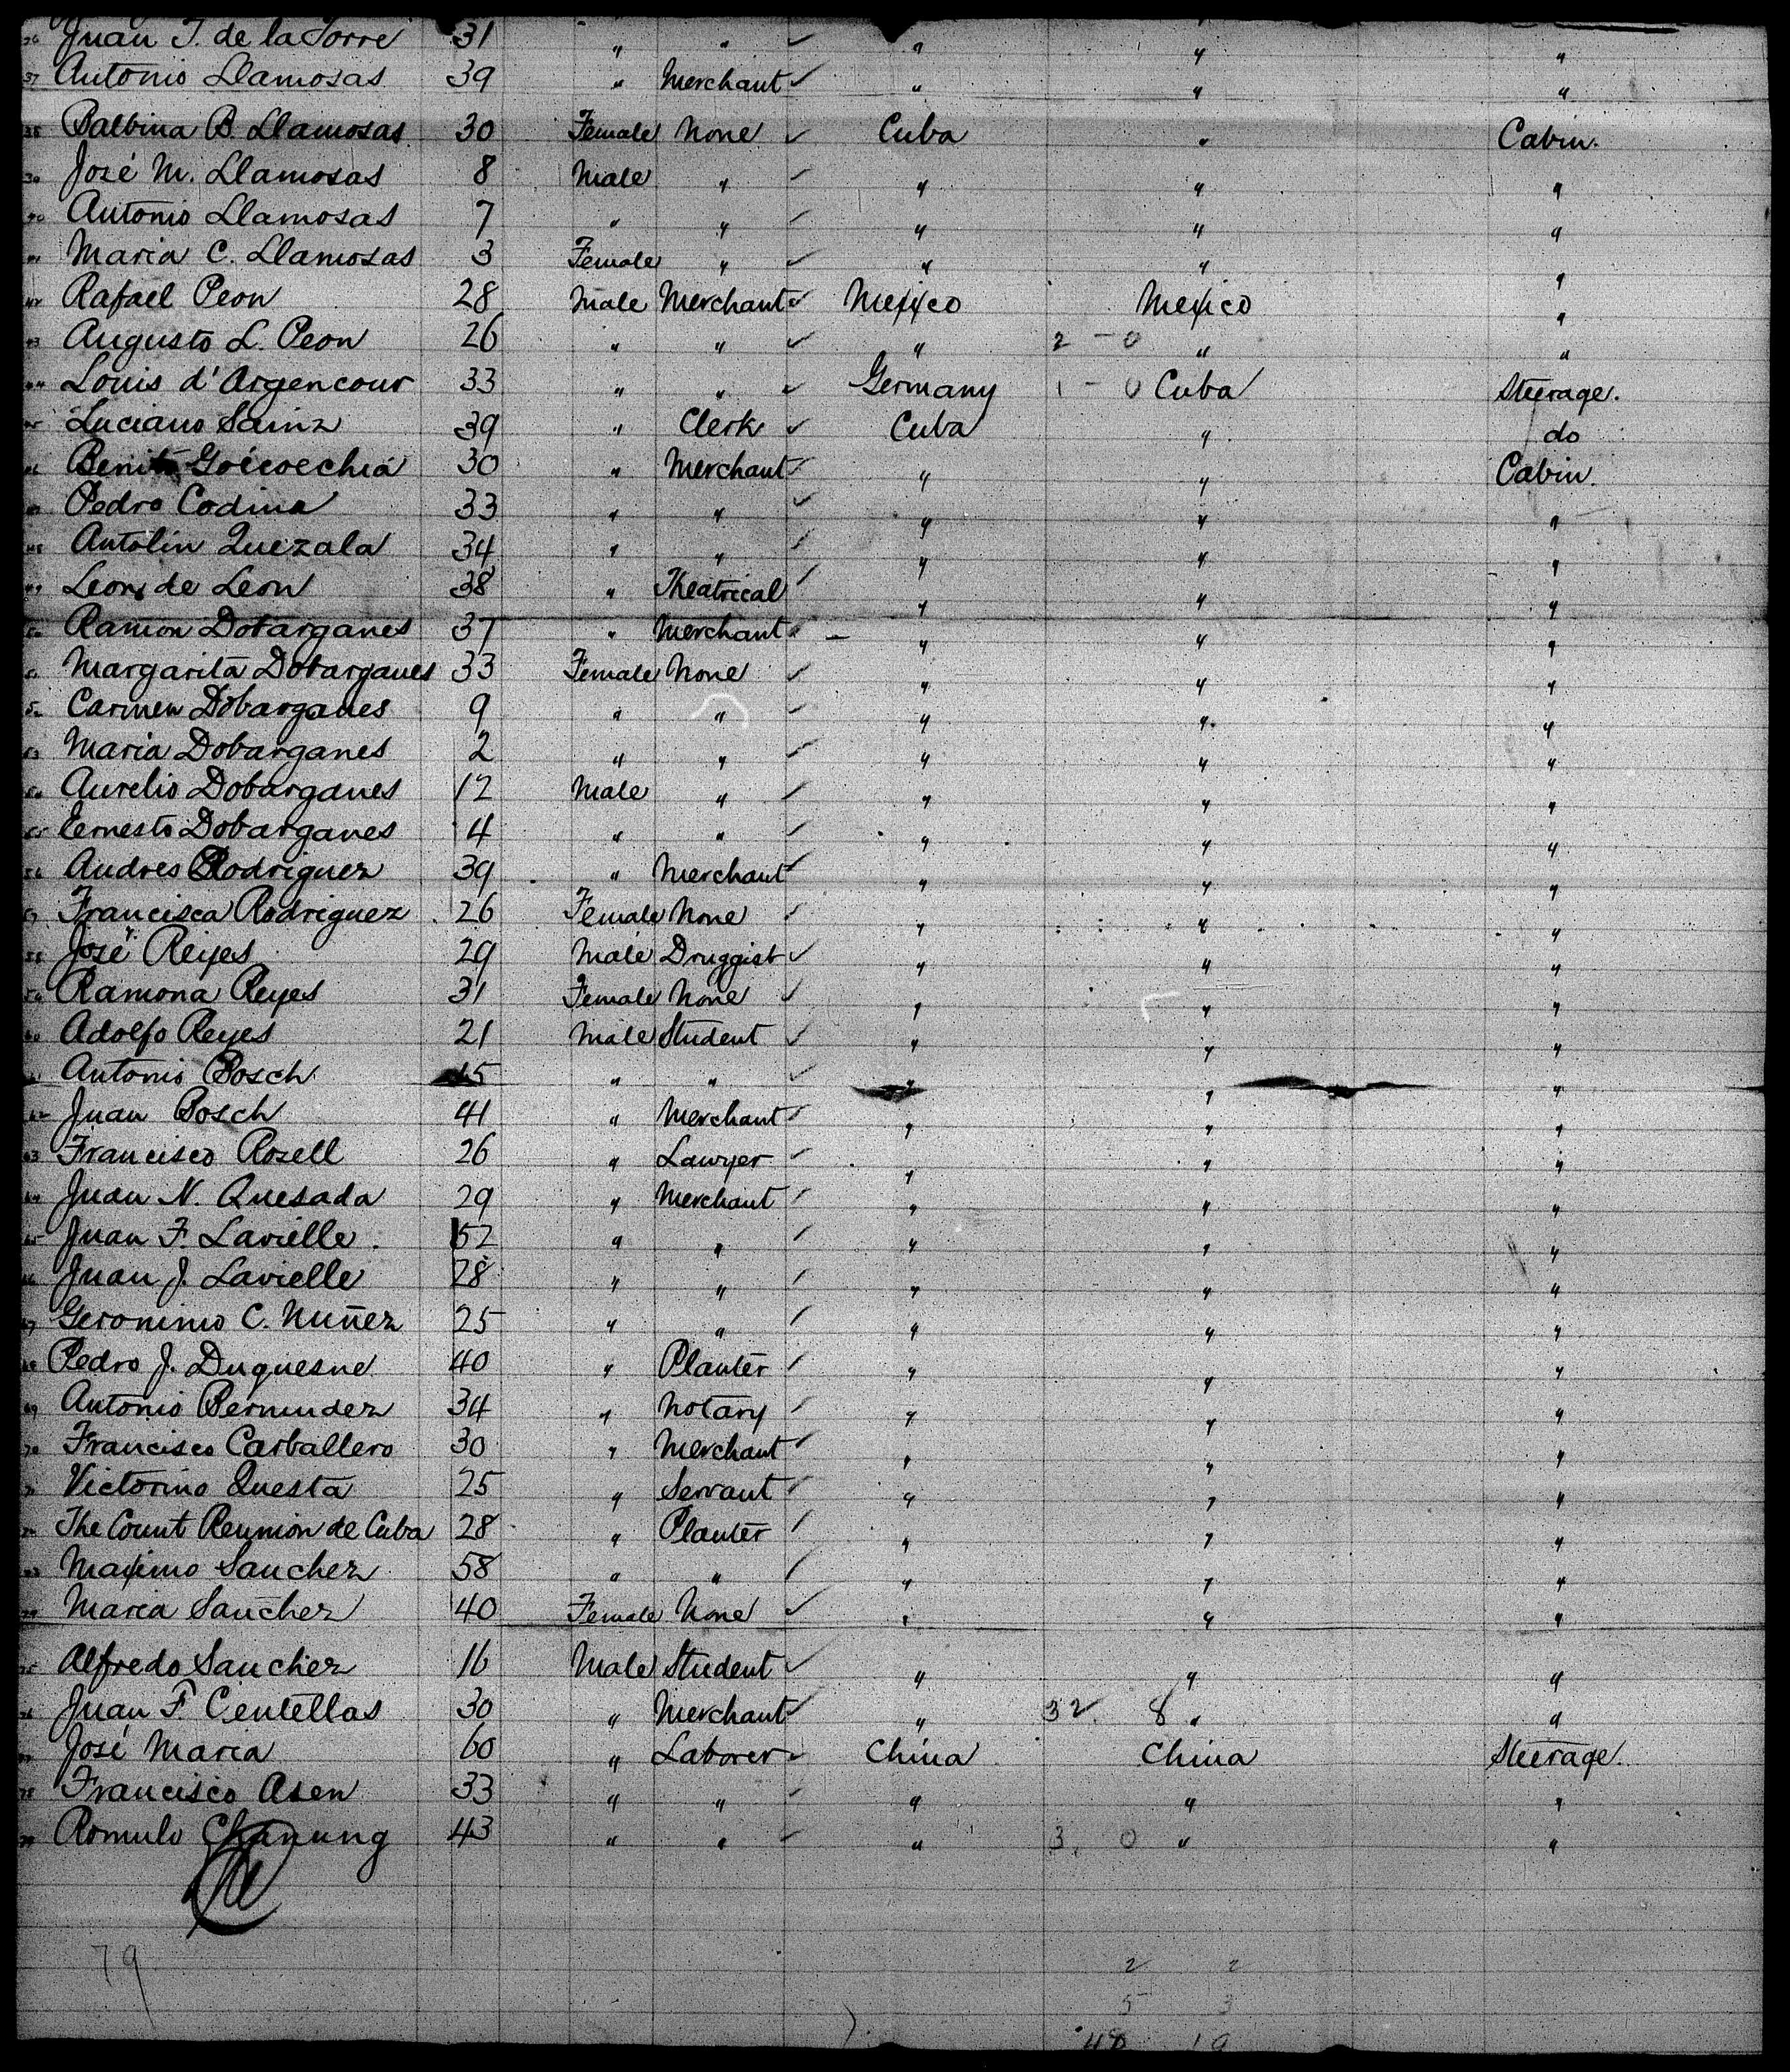 36 Juan T. de la Torre 31 " " " " "
37 Antonio Llamosas 39 " Merchant " " "
38 Balbina B. Llamosas 30 Female None Cuba " Cabin.
39 José M. Llamosas 8 Male " " " "
40 Antonio Llamosas 7 " " " " "
41 Maria C. Llamosas 3 Female " " " "
42 Rafael Peon 28 Male Merchant Mexico Mexico "
43 Augusto L. Peon 26 " " " 2 - 0 " "
44 Louis d'Argencour 33 " " Germany 1 - 0 Cuba Steerage.
45 Luciano Sainz 39 " Clerk Cuba " do
46 Benito Goicoechia 30 " Merchant " " Cabin.
47 Pedro Codina 33 " " " " "
48 Antolin Quezala 34 " " " " "
49 Leon de Leon 38 " Theatrical " " "
50 Ramon Dobarganes 37 " Merchant - " " "
51 Margarita Dobarganes 33 Female None " " "
52 Carmen Dobarganes 9 " " " " "
53 Maria Dobarganes 2 " " " " "
54 Aurelio Dobarganes 12 Male " " " "
55 Eernesto Dobarganes 4 " " " " "
56 Andres Rodriguez 39 " Merchant " " "
57 Francisca Rodriguez 26 Female None " " "
58 José Reyes 29 Male Druggist " " "
59 Ramona Reyes 31 Female None " " "
60 Adolfo Reyes 21 Male Student " " "
61 Antonio Bosch 15 " " " " "
62 Juan Bosch 41 " Merchant " " "
63 Francisco Rosell 26 " Lawyer " " "
64 Juan N. Quesada 29 " Merchant " " "
65 Juan F. Lavielle 52 " " " " "
66 Juan J. Lavielle 28 " " " " "
67 Geronimo C. Nuñez 25 " " " " "
68 Pedro J. Duquesne 40 " Planter " " "
69 Antonio Bermudez 34 " Notary " " "
70 Francisco Carballero 30 " Merchant " " "
71 Victorino Questa 25 " Servant " " "
72 The Count Reunion de Cuba 28 " Planter " " "
73 Maximo Sanchez 58 " " " " "
74 Maria Sanchez 40 Female None " " "
75 Alfredo Sanchez 16 Male Student " " "
76 Juan F. Centellas 30 " Merchant " 32 8 " "
77 José Maria 60 " Laborer China China Steerage.
78 Francisco Asen 33 " " " " "
79 Romulo Chanung 43 " " " 3. 0 " "
79
2 2
5 3
48 19